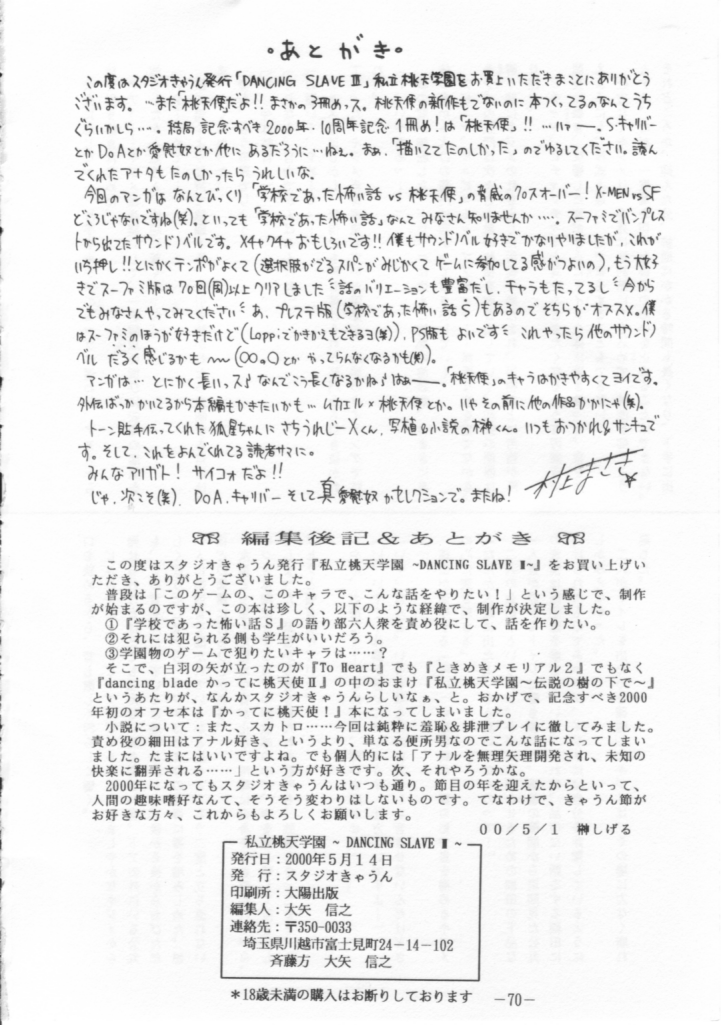 ・あとがき・
この度はスタジオきゃうん発行「DANCING SLAVE Ⅲ」私立桃天学園をお買上いただきまことにありがとう
ございます。…また「桃天使」だよ!!まさかの3冊めっス。桃天使の新作もでないのに本つくってるのなんてうち
ぐらいかしら…。結局記念すべき2000年・10周年記念1冊め!は「桃天使」!!…ハァー。S・キャリバー
とかDoAとか愛慰奴とか他にあるだろうに…ねぇ。まぁ、「描いててたのしかった」のでゆるしてください。読ん
でくれたアナタもたのしかったらうれしいな。
今回のアンガはなんとびっくり「学校であった怖い話 vs 桃天使」の脅威のクロスオーバー!X-MEN vs SF
どころじゃないですね(笑)。といっても「学校であった怖い話」なんてみなさん知りませんか…。スーファミでバンプレス
トから出てたサウンドノベルです。メチャクチャおもしろいです!!僕もサウンドノベル好きでかなりやりましたが、これが
いち押し!!とにかくテンポがよくて(選択肢がでるスパンがみじかくてゲームに参加してる感がつよいの)、もう大好
きでスーファミ版は70回(周)以上クリアしました 話のバリエーションも豊富だし、キャラもたってるし 今から
でもみなさんやってみてください あ、プレステ版(学校であった怖い話S)もあるのでそちらがオススメ。僕
はスーファミのほうが好きだけど(Loppiでかきかえもできるヨ(笑))、PS版もよいです これやったら他のサウンド
ベルだるく感じるかも～(○○。○とかやってらんなくなるかも(笑))。
アンガは…とにかく長いっス♪なんでこう長くなるかね♪はぁー。「桃天使」のキャラはかきやすくてヨイです。
外伝ばっかかいてるから本編もかきたいかも…ムカエル×桃天使とか。いやその前に他の作品かかにゃ(笑)。
トーン貼手伝ってくれた狐星ちゃんにさちうれじーXくん、写植&小説の榊くん。いつもおつかれ&サンキュで
す。そして、これをよんでくれてる読者サマに。
みんなアリガト!サイコォだよ!!
じゃ、次こそ(笑)、DoA、キャリバーそして真愛慰奴かセレクションで。またね!
村上まさき
編集後記&あとがき
この度はスタジオきゃうん発行『私立桃天学園 ~DANCING SLAVE Ⅲ~』をお買い上げい
ただき、ありがとうございました。
普段は「このゲームの、このキャラで、こんな話をやりたい！」という感じで、制作
が始まるのですが、この本は珍しく、以下のような経緯で、制作が決定しました。
①『学校であった怖い話Ｓ』の語り部六人衆を責め役にして、話を作りたい。
②それには犯られる側も学生がいいだろう。
③学園物のゲームで犯りたいキャラは……？
そこで、白羽の矢が立ったのが『To Heart』でも『ときめきメモリアル２』でもなく
『dancing blade かってに桃天使Ⅱ』の中のおまけ『私立桃天学園～伝説の樹の下で～』
というあたりが、なんかスタジオきゃうんらしいなぁ、と。おかげで、記念すべき2000
年初のオフセ本は『かってに桃天使！』本になってしまいました。
小説について：また、スカトロ……今回は純粋に羞恥＆排泄プレイに徹してみました。
責め役の細田はアナル好き、というより、単なる便所男なのでこんな話になってしまい
ました。たまにはいいですよね。でも個人的には「アナルを無理矢理開発され、未知の
快楽に翻弄される……」という方が好きです。次、それやろうかな。
2000年になってもスタジオきゃうんはいつも通り。節目の年を迎えたからといって、
人間の趣味嗜好なんて、そうそう変わりはしないものです。てなわけで、きゃうん節が
お好きな方々、これからもよろしくお願いします。
００/５/１　榊しげる
私立桃天学園 ~ DANCING SLAVE Ⅲ ~
発行日：2000年５月１４日
発　行：スタジオきゃうん
印刷所：大陽出版
編集人：大矢　信之
連絡先：〒350-0033
埼玉県川越市富士見町24－14－102
斉藤方　大矢　信之
＊18歳未満の購入はお断りしております
－70－